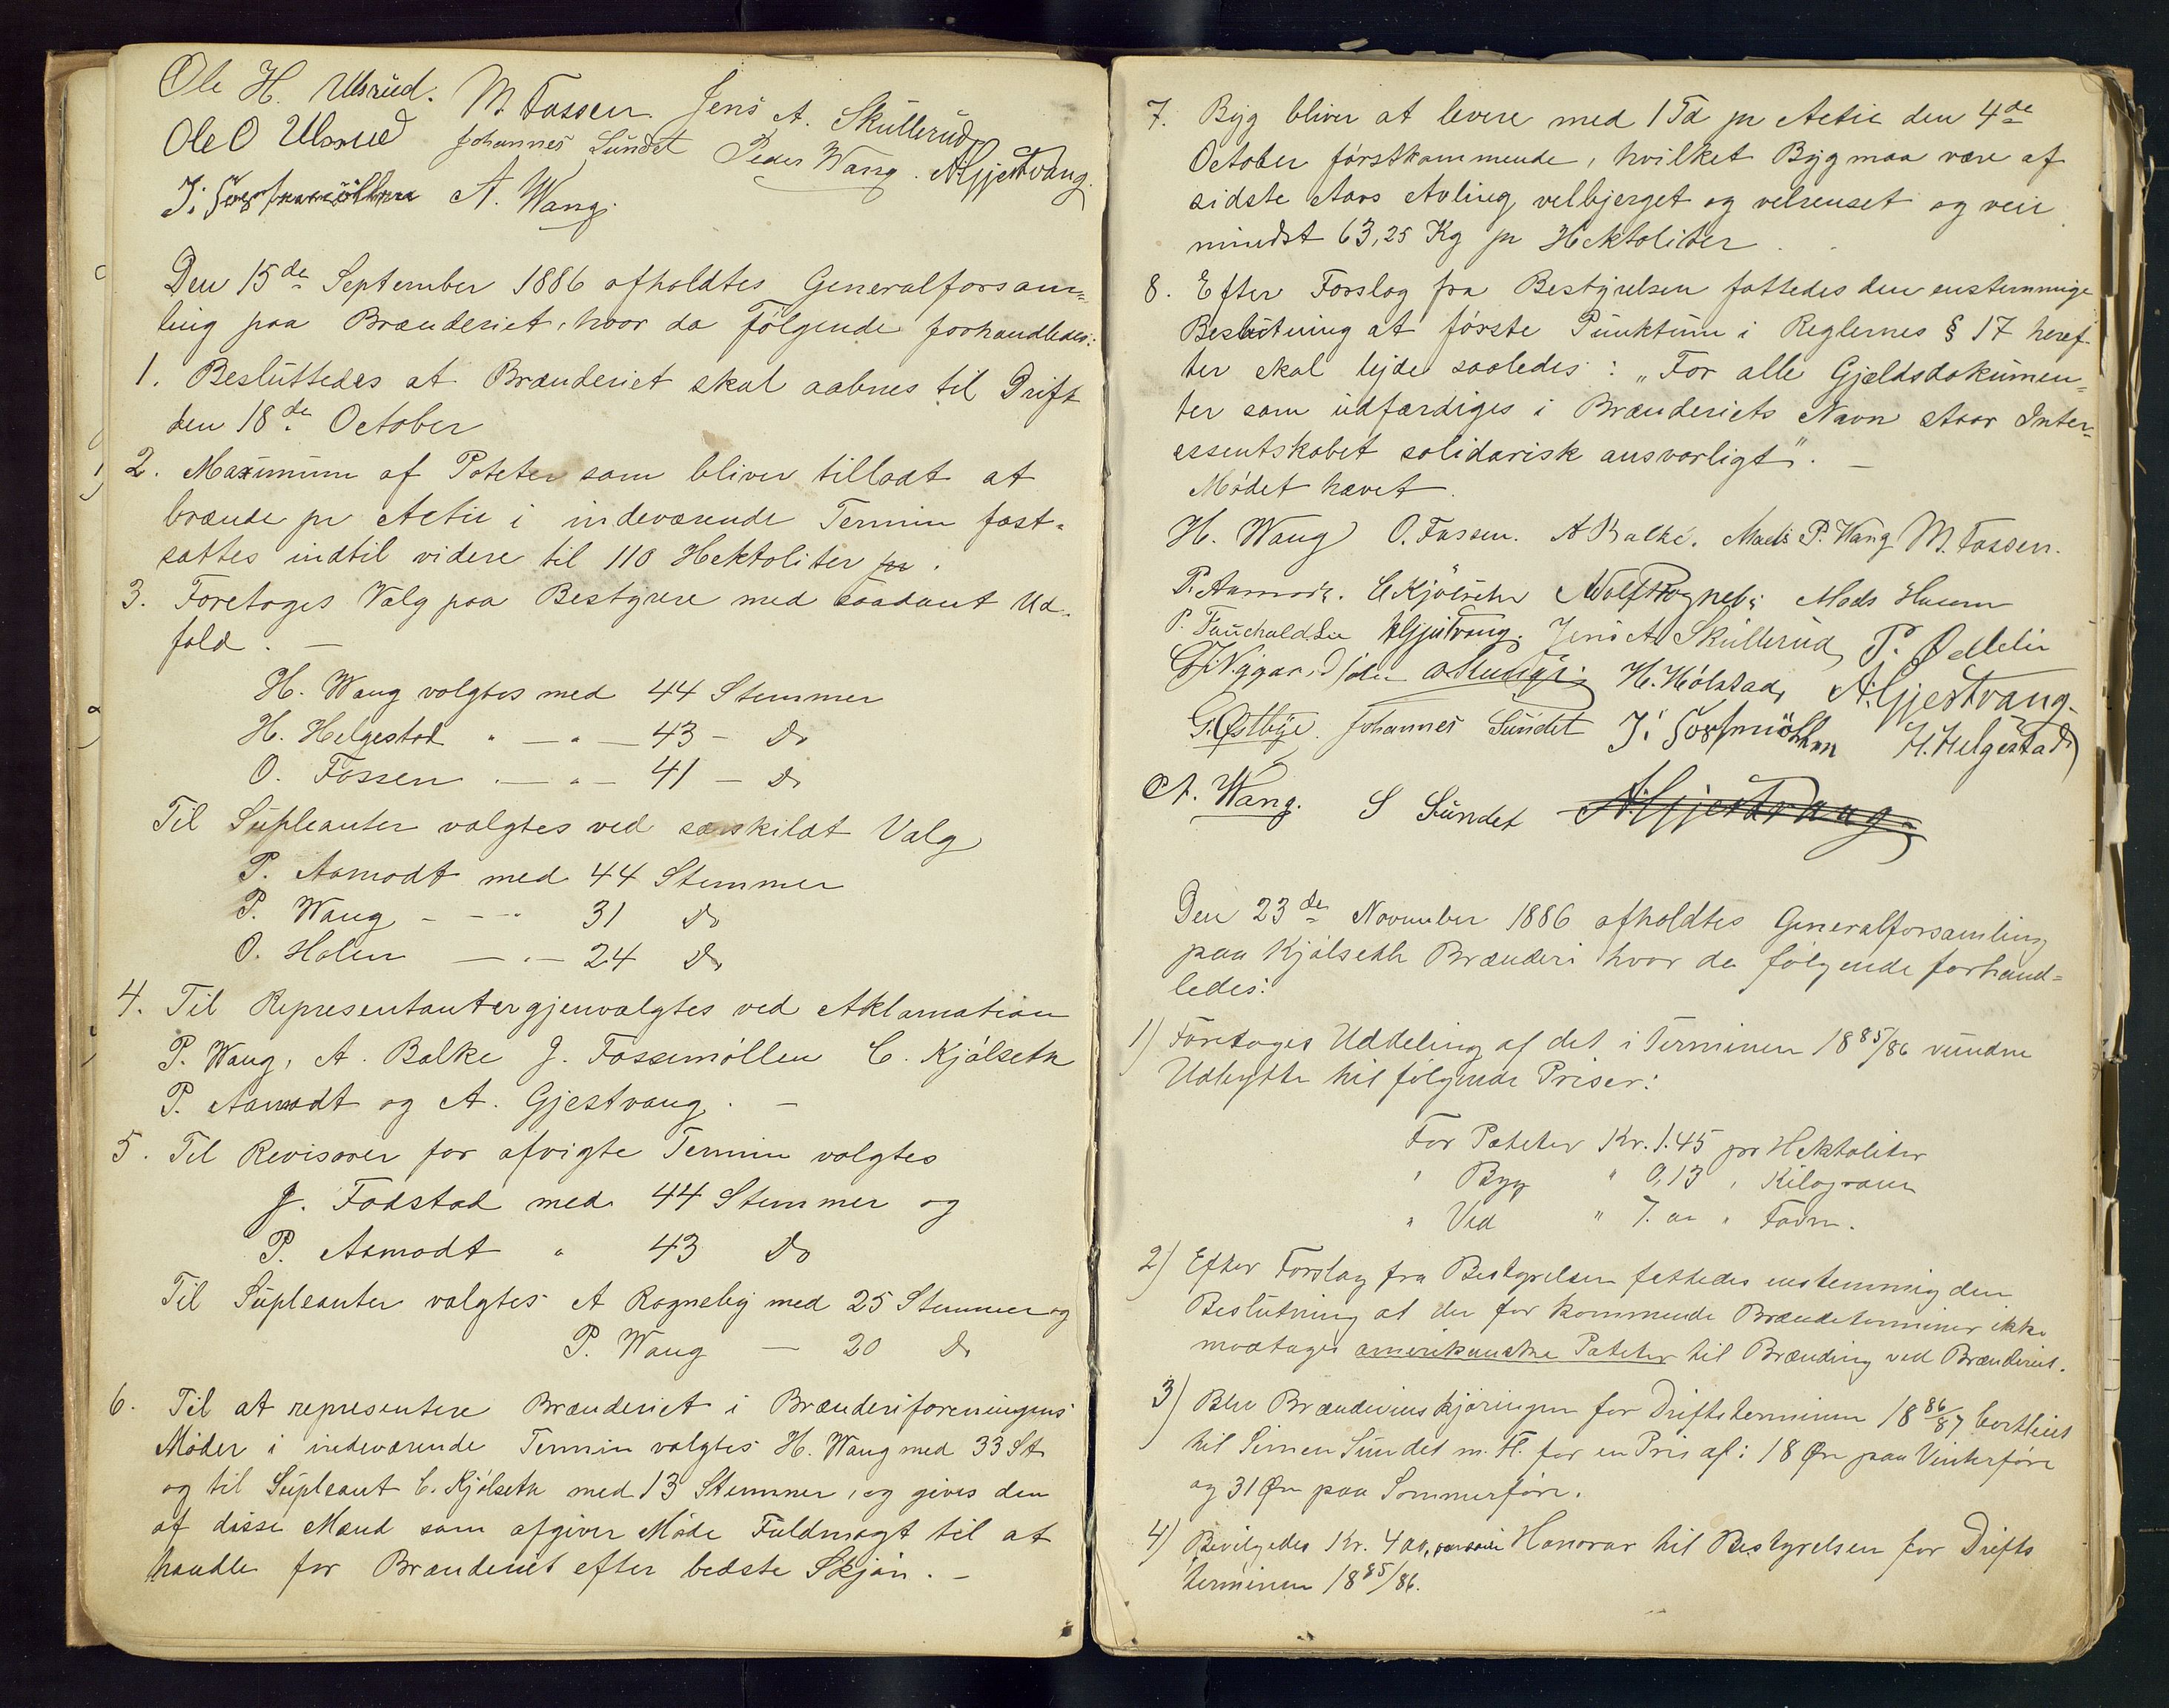 Ole H. Ulsrud. M. Fossen. Jens A. Skullerud,
Ole O Ulsrud Johannes Sundet Peder Wang. A Gjestvang.
J. Fossemöllen A. Wang.
Den 15de September 1886 afholdtes Generalforsam=
ling paa Brænderiet, hvor da følgende forhandledes:
1. Besluttedes at Brænderiet skal aabnes til Drift
den 18de October
2. Maximum af Poteter som bliver tilladt at
brænde pr Actie i indeværende Termin fast-
sattes indtil videre til 110 Hektoliter pr.
3. Foretoges Valg paa Bestyrere med saadant Ud-
fald. —
H. Wang valgtes med 44 Stemmer
H. Helgestad " — " — 43 — Do
O. Fossen — " — 41 — Do
Til Supleanter valgtes ved særskildt Valg
P. Aamodt med 44 Stemmer
P. Wang - - - " 31 Do
O. Holen — " — 24 Do
4. Til Representanter gjenvalgtes ved Aklamation
P. Wang, A. Balke J. Fossemøllen C. Kjølseth
P. Aamodt og A. Gjestvang. —
5. Til Revisorer for afvigte Termin valgtes
J. Fodstad med 44 Stemmer og
P. Aamodt " 43 Do
Til Supleanter valgtes A Rognebÿ med 25 Stemmer og
P. Wang — 20 Do
6. Til at representere Brænderiet i Brænderiforeningens
Møder i indeværende Termin valgtes H. Wang med 33 St
og til Supleant C. Kjølseth med 13 Stemmer, og gives den
af disse Mænd som afgiver Møde Fuldmagt til at
handle for Brænderiet efter bedste Skjøn. —
7. Byg bliver at levere med 1 Td pr Actie den 4de
October førstkommende, hvilket Byg maa være af
sidste Aars Avling velbjerget og velrenset og veie
mindst 63,25 Kg pr Hektoliter.
8. Efter Forslag fra Bestyrelsen fattedes den enstemmige
Beslutning at første Punktum i Reglernes § 17 heref-
ter skal lyde saaledes: „For alle Gjældsdokumen=
ter som udfærdiges i Brænderiets Navn staar Inter=
essentskabet solidarisk ansvarligt". —
Mødet hævet.
H. Wang O. Fossen. A Balke. Mads P. Wang M. Fossen.
P. Aamodt. C Kjölseth Adolf Rognebÿ Mads Husum
P. Fauchald A Gjestvang. Jens A. Skullerud,
H. Hólstad, A. Gjestvang.
G. Østbye. Johannes Sundet J. Fossmöllen H. Helgestad
A. Wang. S Sundet A. Gjestvang.
Den 23de November 1886 afholdtes Generalforsamling
paa Kjølseth Brænderi hvor da følgende forhand=
ledes:
1) Foretoges Uddeling af det i Terminen 1885/86 vundne
Udbytte til følgende Priser:
For Poteter Kr. 1.45 pr Hektoliter
" Byg " 0,13 " Kilogram
" Ved " 7.00 " Favn.
2) Efter Forslag fra Bestyrelsen fattedes enstemmig den
Beslutning at der for kommende Brændeterminer ikke
modtages amerikanske Poteter til Brænding ved Brænderiet.
3) Blev Brændevinskjøringen for Driftsterminen 1886/87 bortleiet
til Simen Sundet m. Fl. for en Pris af: 18 Øre paa Vinterføre
og 31 Øre paa Sommerføre.
4) Bevilgedes Kr. 400, Honorar til Bestyrelsen for Drifts
terminen 1885/86.